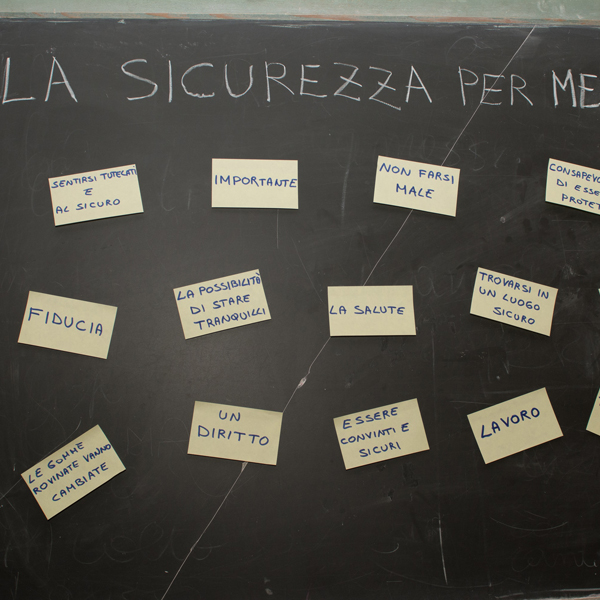 LA SICUREZZA PER ME
SENTIRSI TUTELATI
E
AL SICURO
IMPORTANTE
NON FARSI
MALE
DI
FIDUCIA
LA POSSIBILITÀ
DI STARE
TRANQUILLI
LA SALUTE
TROVARSI IN
UN LUOGO
SICURO
LE GOMME
ROVINATE VANNO
CAMBIATE
UN
DIRITTO
ESSERE
CONVINTI E
SICURI
LAVORO